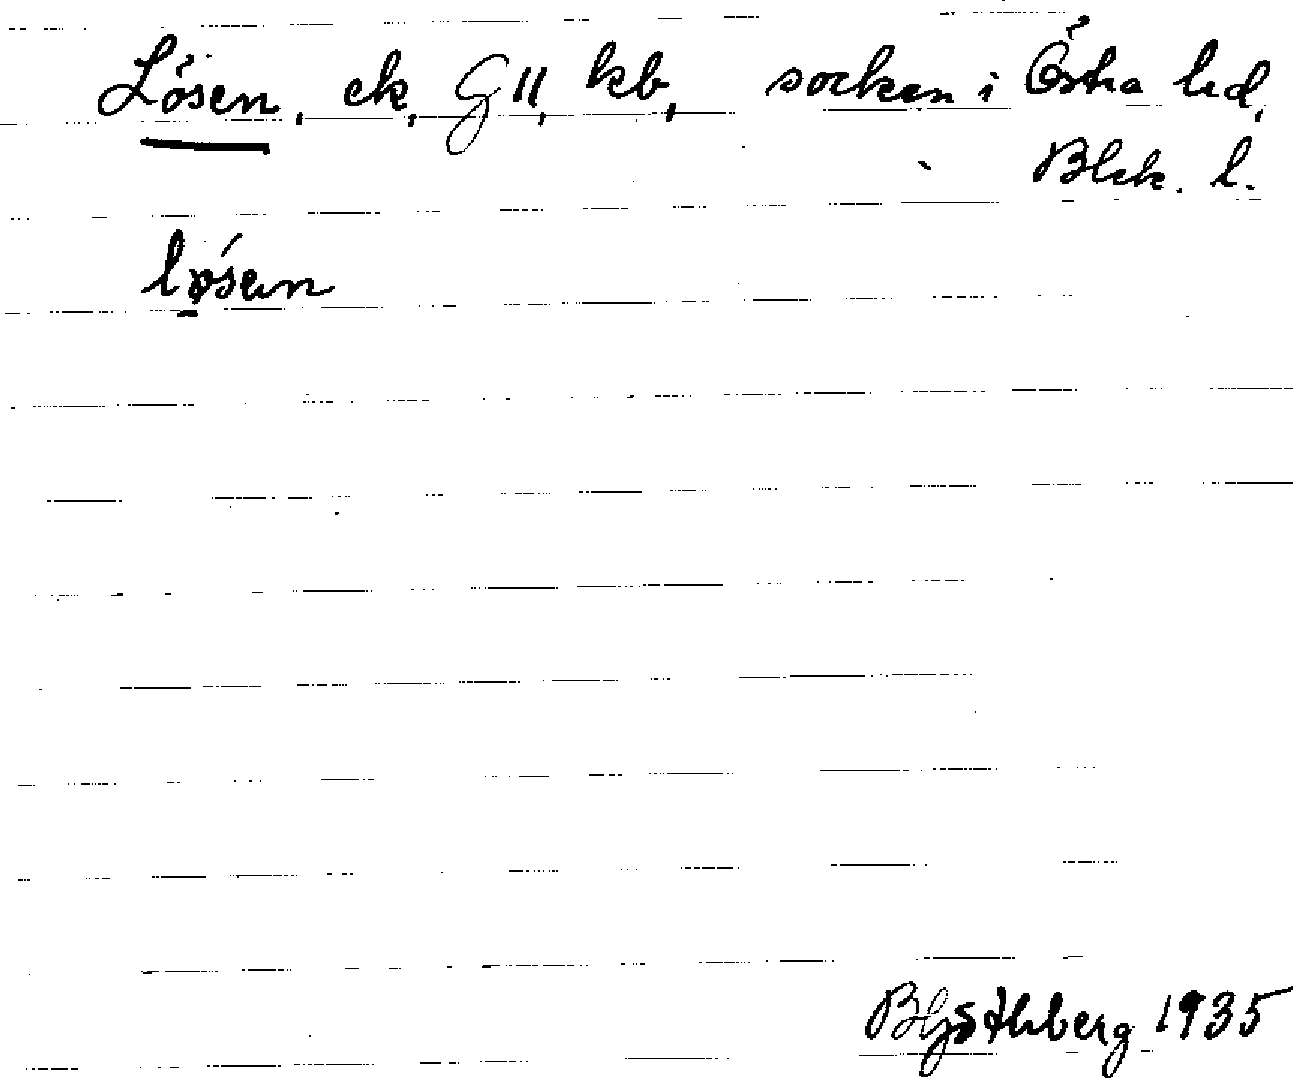 Lösen, ek, G II, kb, socken i Östra hd,
Blek. l.
lǿsen
1935